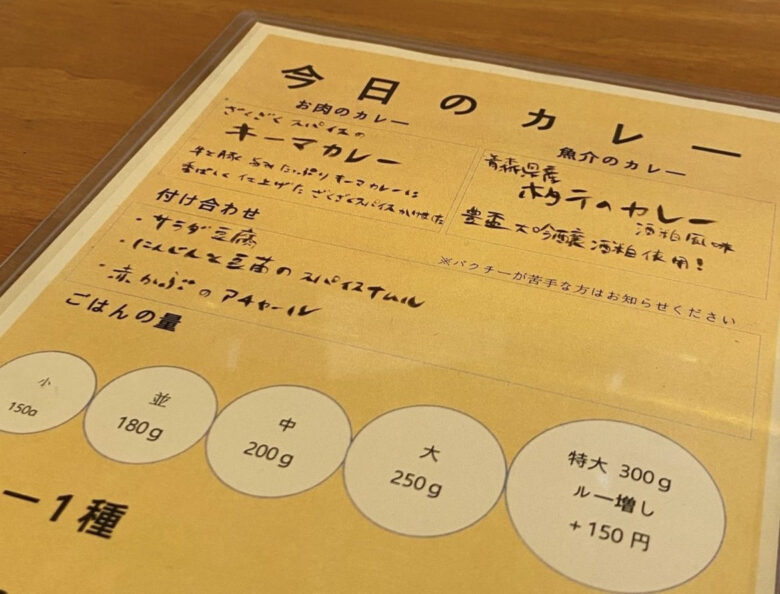 今日のカレー
お肉のカレー
ざくざくスパイスの
キーマカレー
牛と豚 旨みたっぷりキーマカレーに
香ばしく仕上げたざくざくスパイスかけました
魚介のカレー
青森県産
ホタテのカレー
酒粕風味
豊盃 大吟醸 酒粕使用!
付け合わせ
・サラダ豆腐
・にんじんと豆苗のスパイスナムル
・赤かぶのアチャール
※パクチーが苦手な方はお知らせください
ごはんの量
小
150g
並
180g
中
200g
大
250g
特大 300g
ルー増し
+150円
ー1種